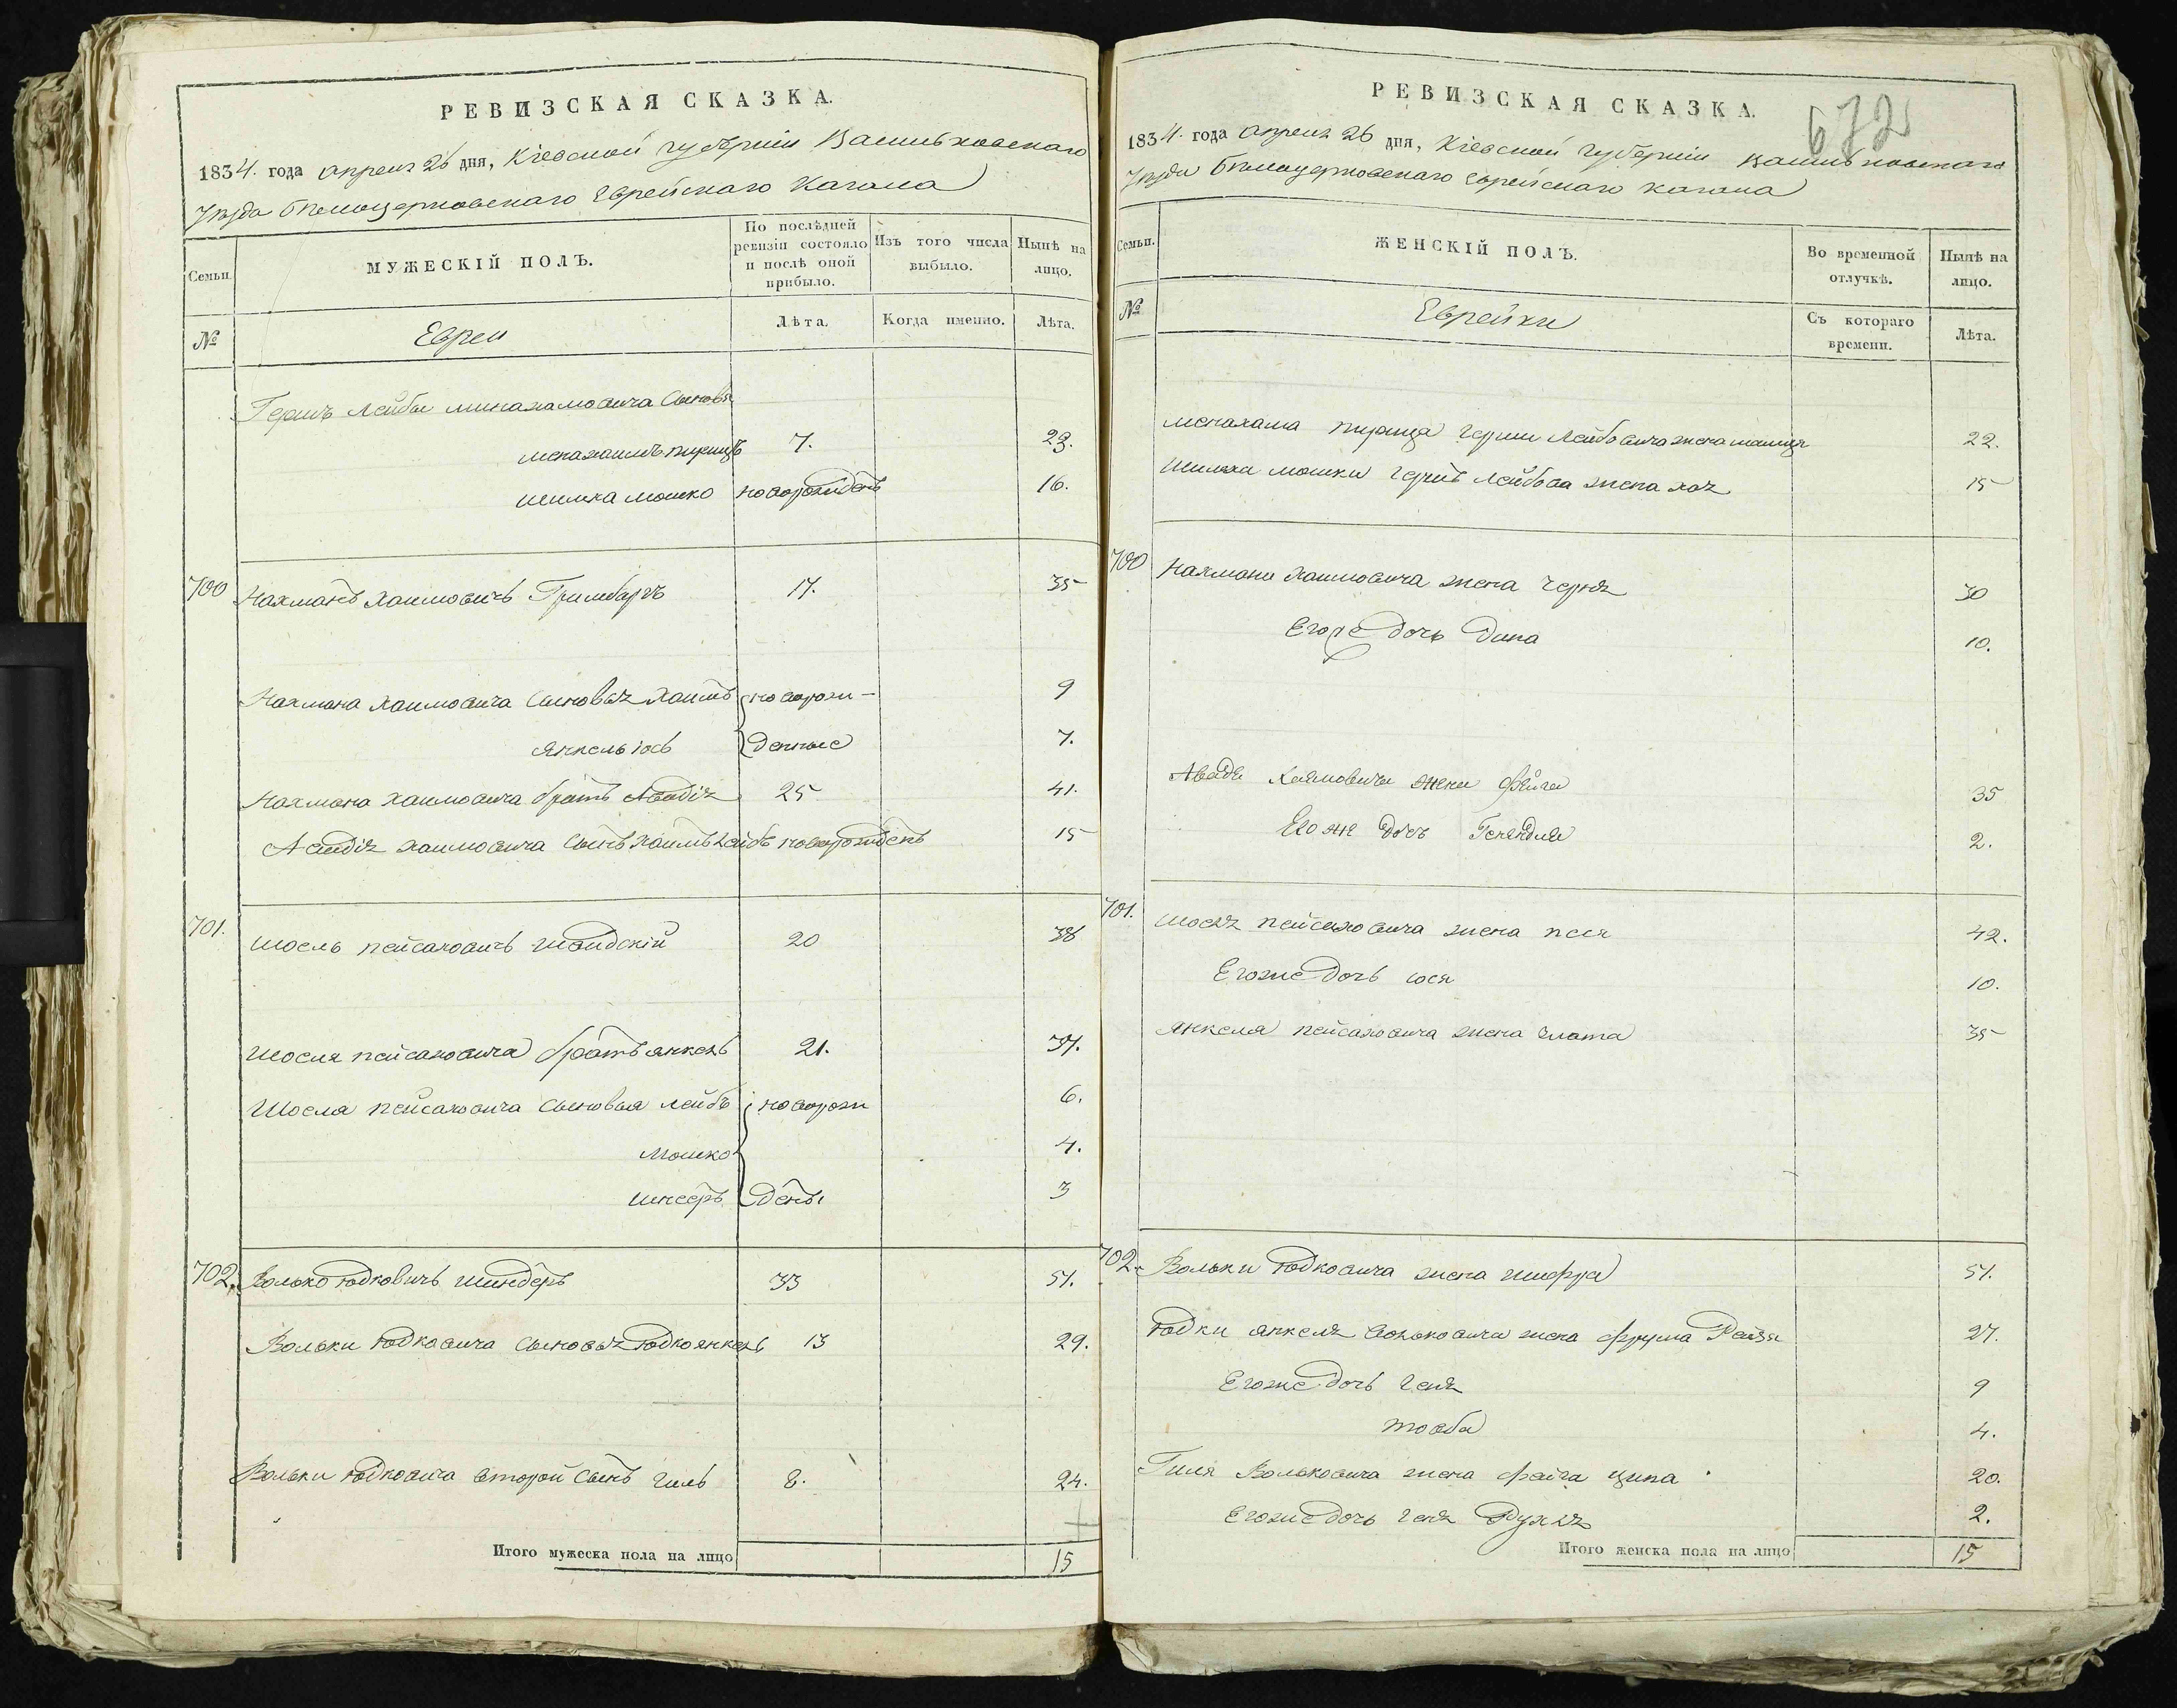 РЕВИЗСКАЯ СКАЗКА.
1834. года апреля 26 дня, Кіевской губерніи Васильковскаго
Уезда белоцерковскаго Еврейскаго Кагала
Семьи.
МУЖЕСКІЙ ПОЛЪ.
По послѣдней ревизіи состояло и послѣ оной прибыло.
Изъ того числа выбыло.
Нынѣ на лицо.
№
Евреи
Лѣта.
Когда именно.
Лѣта.
Гершъ Лейбы минахамовича Сыновя
менахаимъ пирицъ 7. 23.
шилка мошко новорожденъ 16.
700 Нахманъ хаимовичъ Гримбаръ 17. 35
Нахмана хаимовича сыновья хаимъ новорож- 9
янкель іось денные 7.
Нахмана хаимовича братъ Авадія 25 41.
Авадія хаимовича сынъ хаимъ Лейбъ новорожденъ 15
701. шоель пейсаховичъ 20 38
шоеля пейсаховича братъ янкель 21. 37.
Шоеля пейсаховича сыновья лейбъ новорож 6.
мошко 4.
шнееръ дены 3
702. Волько юдковичъ шиндеръ 33 51.
Вольки юдковича сыновья юдко янкель 13 29.
Вольки юдковича второй сынъ гиль 8. 24.
Итого мужеска пола на лицо 15
РЕВИЗСКАЯ СКАЗКА.
672
1834. года апреля 26 дня, Кіевской губерніи Васильковскаго
Уезда белоцерковскаго еврейскаго кагала
Семьи.
ЖЕНСКІЙ ПОЛЪ.
Во временной отлучкѣ.
Нынѣ на лицо.
№
Еврейки
Съ котораго времени.
Лѣта.
менахама пирица герш Лейбовича жена 22.
Шилки мошки гершъ лейбова жена хая 15
700 Нахмана хаимовича жена черня 30
Егоже дочь Дина 10.
Авадя Хаимовича жена фейга 35
Его же дочь Генендля 2.
701. шоеля пейсаховича жена песя 42.
Егоже дочь сося 10.
янкеля пейсаховича жена злата 35
702. Вольки юдковича жена шифра 51.
юдки янкеля вольковича жена фрума Рейзя 27.
Егоже дочь геня 9
товба 4.
Гиля Вольковича жена фейга ципа 20.
Егоже дочь геня Рухля 2.
Итого женска пола на лицо 15